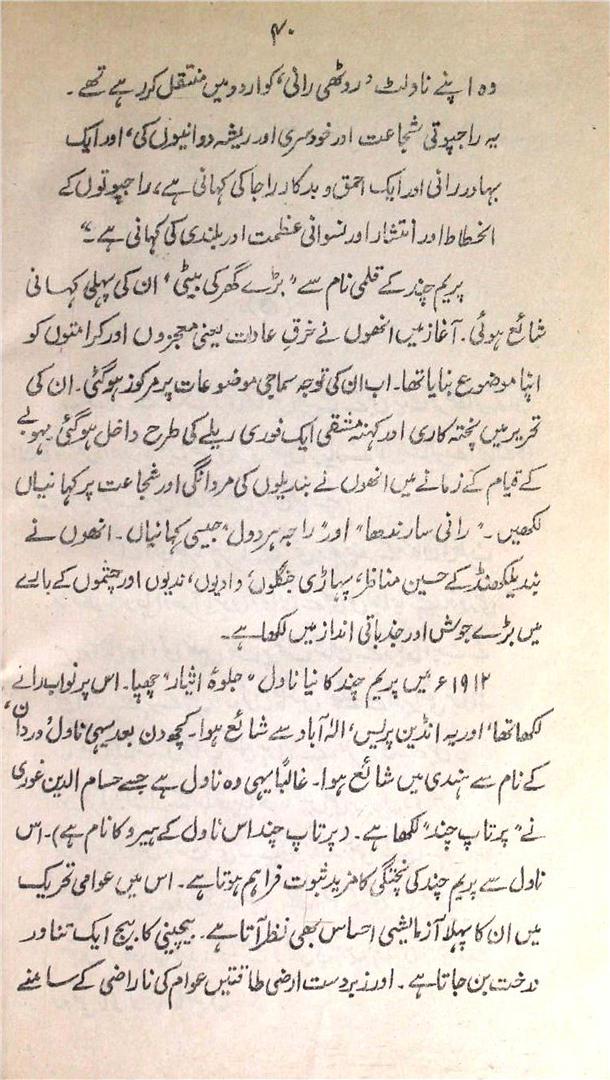 ۴۰
وہ اپنے ناولٹ 'روٹھی رانی' کو اردو میں منتقل کر رہے تھے۔
یہ راجپوتی شجاعت اور خودسری اور ریشہ دوانیوں کی، اور ایک
بہادر رانی اور ایک احمق و بدکار راجا کی کہانی ہے، راجپوتوں کے
انحطاط اور انتشار اور نسوانی عظمت اور بلندی کی کہانی ہے۔"
پریم چند کے قلمی نام سے "بڑے گھر کی بیٹی" ان کی پہلی کہانی
شائع ہوئی۔ آغاز میں انھوں نے خرقِ عادات یعنی معجزوں اور کرامتوں کو
اپنا موضوع بنایا تھا۔ اب ان کی توجہ سماجی موضوعات پر مرکوز ہوگئی۔ ان کی
تحریر میں پختہ کاری اور کہنہ مشقی ایک فوری ریلے کی طرح داخل ہوگئی۔ مہوبے
کے قیام کے زمانے میں انھوں نے بندیلوں کی مردانگی اور شجاعت پر کہانیاں
لکھیں۔ "رانی سارندھا" اور "راجہ ہردول" جیسی کہانیاں۔ انھوں نے
بندیلکھنڈ کے حسین مناظر، پہاڑی جنگلوں، وادیوں، ندیوں اور چشموں کے بارے
میں بڑے جوش اور جذباتی انداز میں لکھا ہے۔
۱۹۱۲ء میں پریم چند کا نیا ناول "جلوۂ ایثار" چھپا۔ اس پر نواب رائے
لکھا تھا، اور یہ انڈین پریس، الٰہ آباد سے شائع ہوا۔ کچھ دن بعد یہی ناول 'وردان'
کے نام سے ہندی میں شائع ہوا۔ غالباً یہی وہ ناول ہے جسے حسام الدین غوری
نے "پرتاپ چند" لکھا ہے۔ (پرتاپ چند اس ناول کے ہیرو کا نام ہے)۔ اس
ناول سے پریم چند کی پختگی کا مزید ثبوت فراہم ہوتا ہے۔ اس میں عوامی تحریک
میں ان کا پہلا آزمائشی احساس بھی نظر آتا ہے۔ بیچینی کا بیج ایک تناور
درخت بن جاتا ہے۔ اور زبردست ارضی طاقتیں عوام کی ناراضی کے سامنے